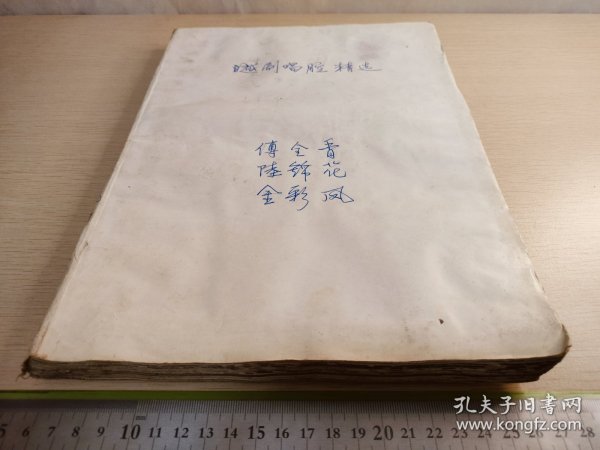 越剧唱腔精选
傅全香
陆锦花
金彩凤
孔夫子旧书网
www.kongfz.com
5 6 7 8 9 10 11 12 13 14 15 16 17 18 19 20 21 22 23 24 25 26 27 28